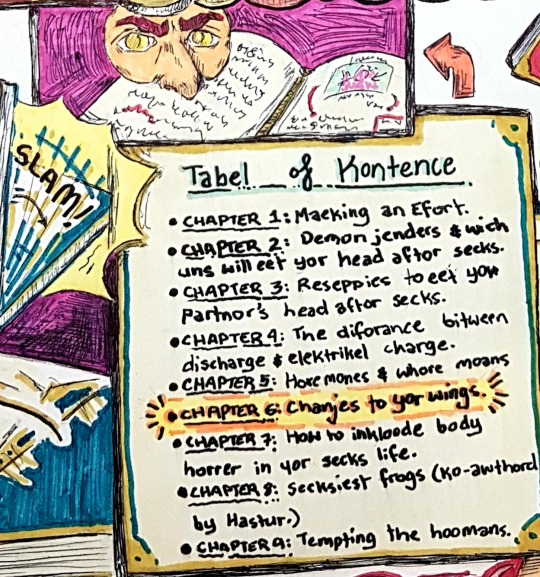 SLAM!
Tabel of Kontence
• CHAPTER 1: Macking an Efort.
• CHAPTER 2: Demon jenders & wich
uns will eet yor head after secks.
• CHAPTER 3: Reseppies to eet yor
Partnor's head after secks.
• CHAPTER 4: The diforance bitween
discharge & elektrikel charge.
• CHAPTER 5: Hore mones & whore moans
• CHAPTER 6: Chanjes to yor wings.
• CHAPTER 7: How to inkloode body
horrer in yor secks life.
• CHAPTER 8: Secksiest frogs (Ko-awthord
by Hastur.)
• CHAPTER 9: Tempting the hoomans.